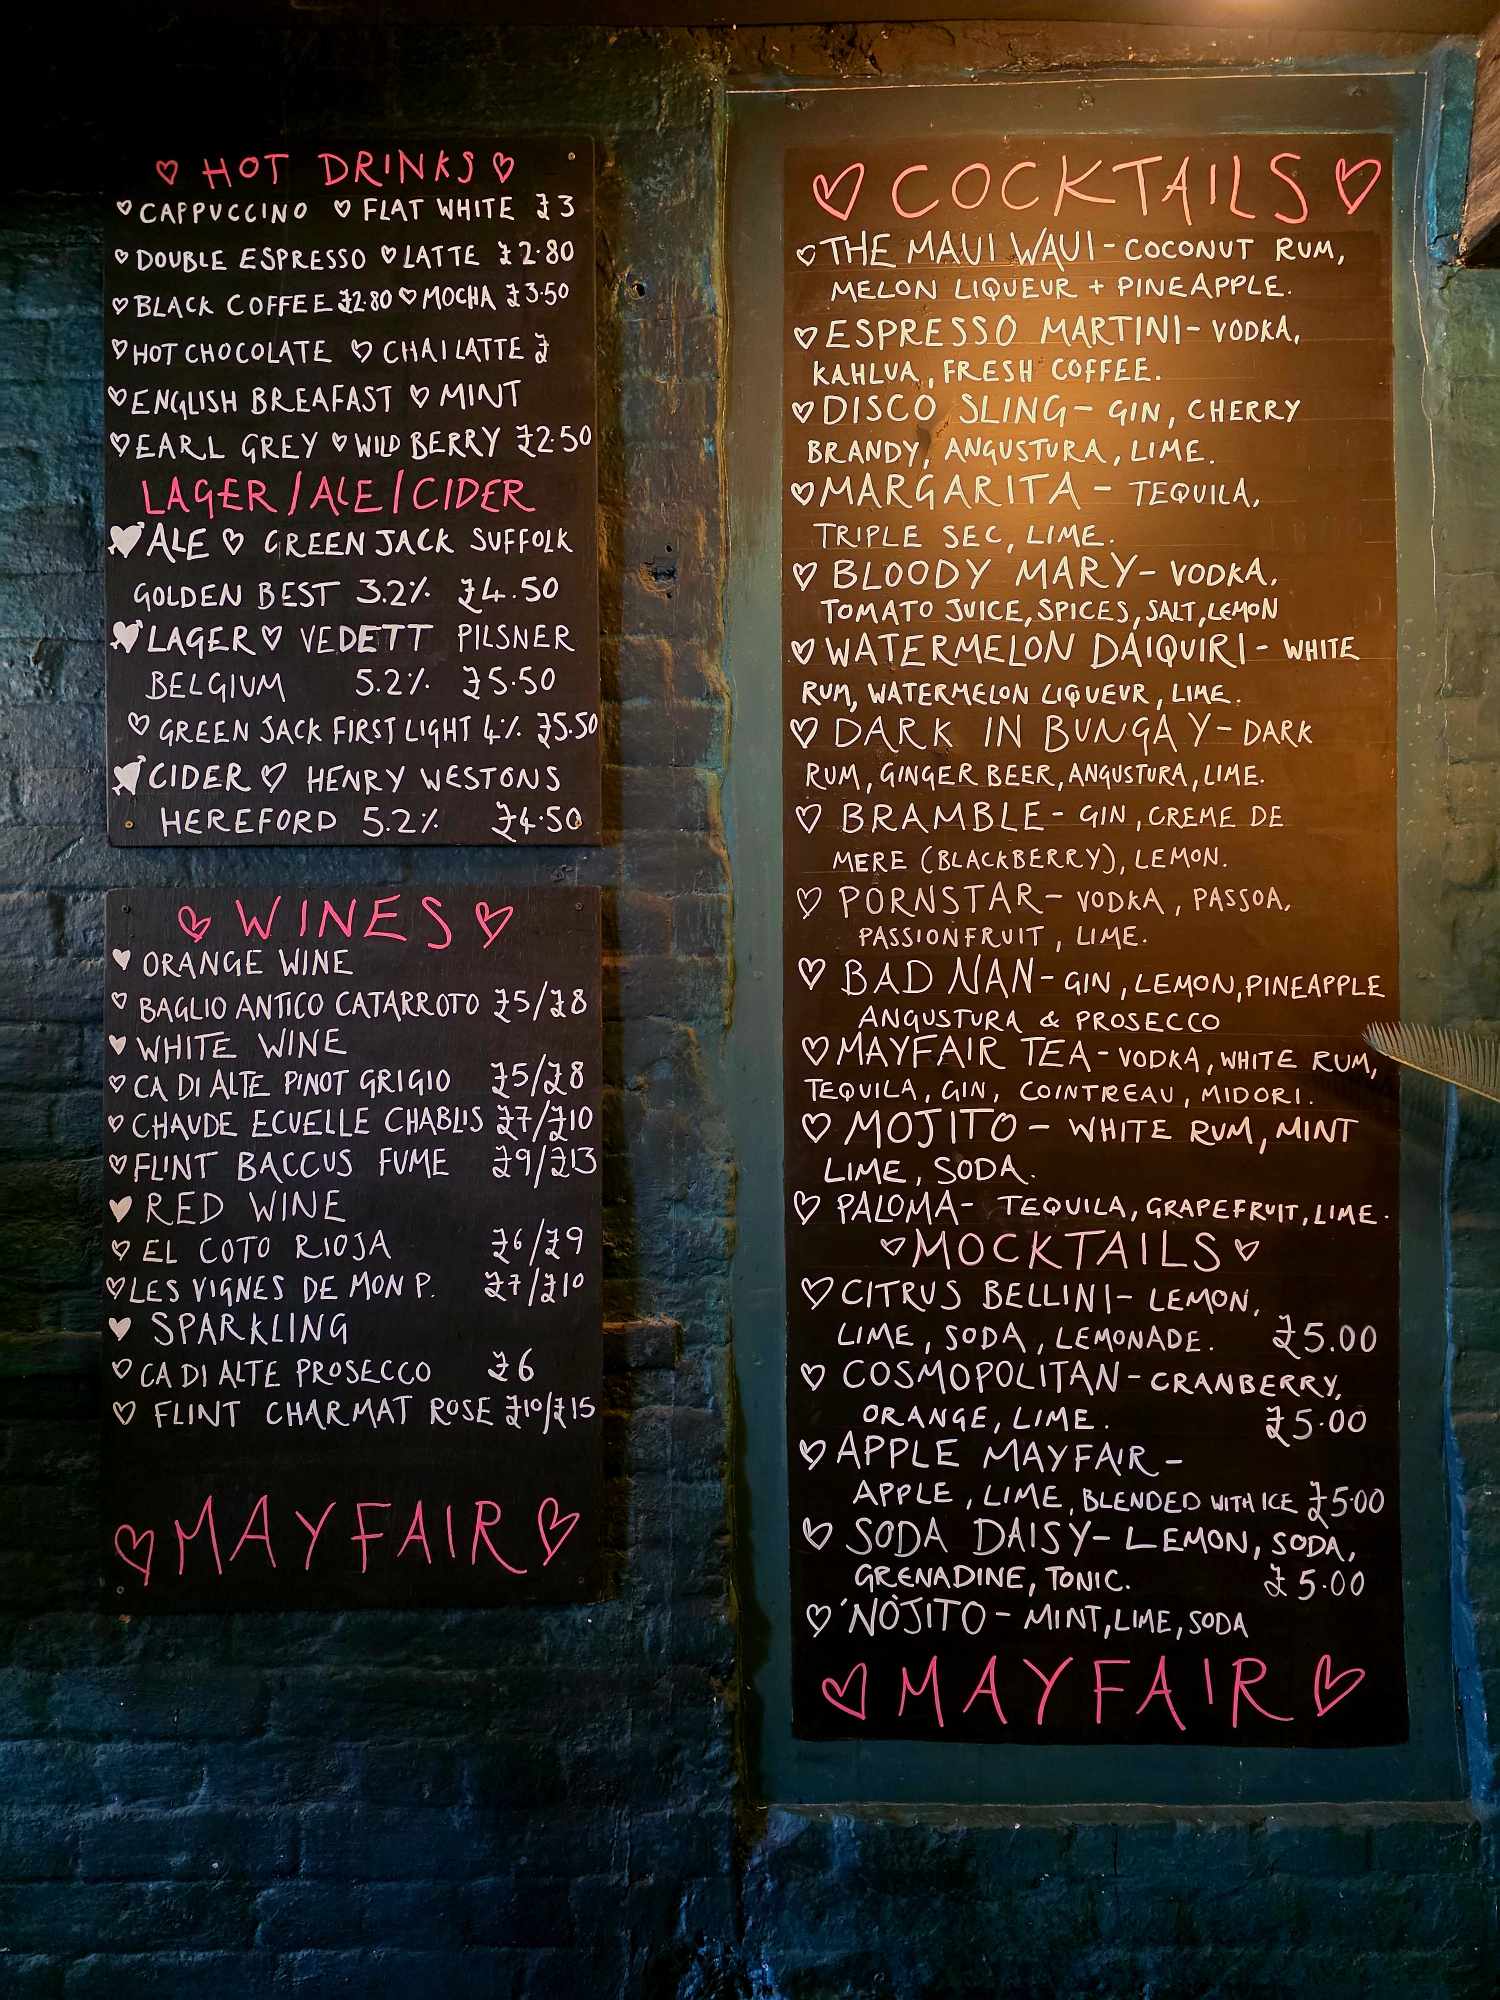 ♡ HOT DRINKS ♡
♡ CAPPUCCINO ♡ FLAT WHITE £3
♡ DOUBLE ESPRESSO ♡ LATTE £2·80
♡ BLACK COFFEE £2·80 ♡ MOCHA £3·50
♡ HOT CHOCOLATE ♡ CHAI LATTE £
♡ ENGLISH BREAFAST ♡ MINT
♡ EARL GREY ♡ WILD BERRY £2·50
LAGER/ALE/CIDER
ALE ♡ GREEN JACK SUFFOLK
GOLDEN BEST 3.2% £4.50
LAGER ♡ VEDETT PILSNER
BELGIUM 5.2% £5.50
♡ GREEN JACK FIRST LIGHT 4% £5.50
CIDER ♡ HENRY WESTONS
HEREFORD 5.2% £4·50
♡ WINES ♡
♥ ORANGE WINE
♡ BAGLIO ANTICO CATARROTO £5/£8
♥ WHITE WINE
♡ CA DI ALTE PINOT GRIGIO £5/£8
♡ CHAUDE ECUELLE CHABLIS £7/£10
♡ FLINT BACCUS FUME £9/£13
♥ RED WINE
♡ EL COTO RIOJA £6/£9
♡ LES VIGNES DE MON P. £7/£10
♥ SPARKLING
♡ CA DI ALTE PROSECCO £6
♡ FLINT CHARMAT ROSE £10/£15
♡ MAYFAIR ♡
♡ COCKTAILS ♡
♡ THE MAUI WAUI - COCONUT RUM,
MELON LIQUEUR + PINEAPPLE.
♡ ESPRESSO MARTINI - VODKA,
KAHLUA, FRESH COFFEE.
♡ DISCO SLING - GIN, CHERRY
BRANDY, ANGUSTURA, LIME.
♡ MARGARITA - TEQUILA,
TRIPLE SEC, LIME.
♡ BLOODY MARY - VODKA,
TOMATO JUICE, SPICES, SALT, LEMON
♡ WATERMELON DAIQUIRI - WHITE
RUM, WATERMELON LIQUEUR, LIME.
♡ DARK IN BUNGAY - DARK
RUM, GINGER BEER, ANGUSTURA, LIME.
♡ BRAMBLE - GIN, CREME DE
MERE (BLACKBERRY), LEMON.
♡ PORNSTAR - VODKA, PASSOA,
PASSIONFRUIT, LIME.
♡ BAD NAN - GIN, LEMON, PINEAPPLE
ANGUSTURA & PROSECCO
♡ MAYFAIR TEA - VODKA, WHITE RUM,
TEQUILA, GIN, COINTREAU, MIDORI.
♡ MOJITO - WHITE RUM, MINT
LIME, SODA.
♡ PALOMA - TEQUILA, GRAPEFRUIT, LIME.
♡ MOCKTAILS ♡
♡ CITRUS BELLINI - LEMON,
LIME, SODA, LEMONADE. £5.00
♡ COSMOPOLITAN - CRANBERRY,
ORANGE, LIME. £5·00
♡ APPLE MAYFAIR -
APPLE, LIME, BLENDED WITH ICE £5·00
♡ SODA DAISY - LEMON, SODA,
GRENADINE, TONIC. £5·00
♡ 'NOJITO - MINT, LIME, SODA
♡ MAYFAIR ♡